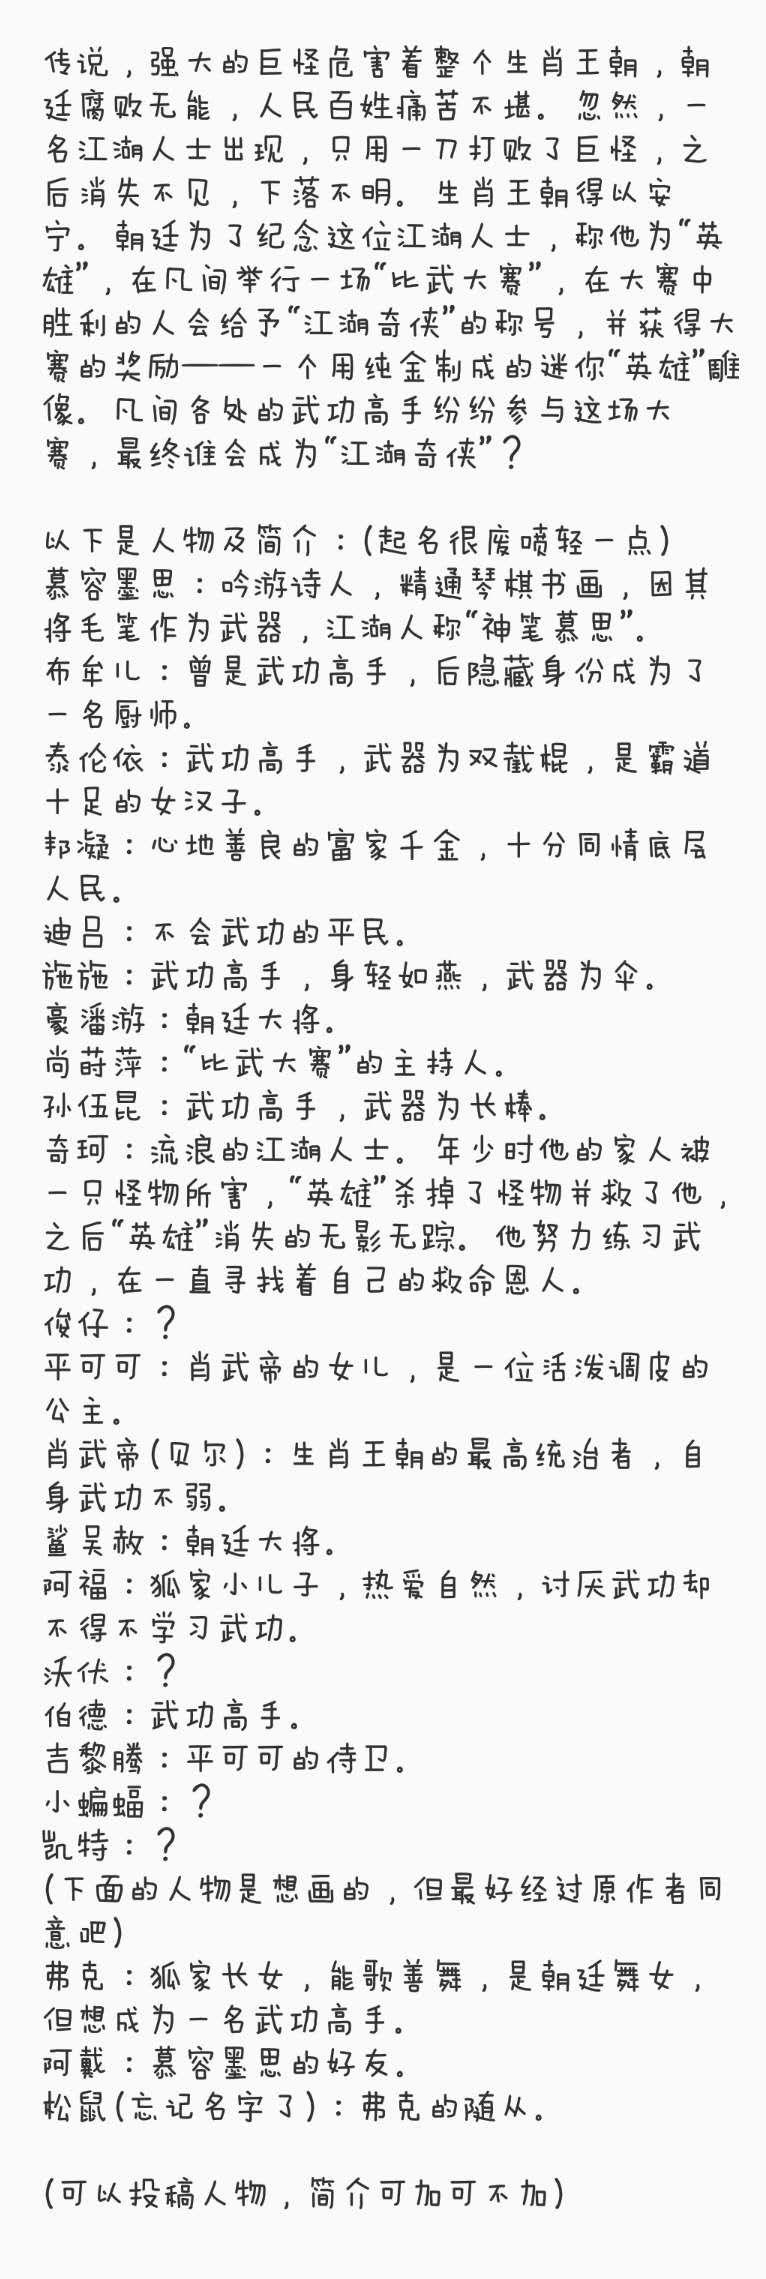 传说，强大的巨怪危害着整个生肖王朝，朝
廷腐败无能，人民百姓痛苦不堪。忽然，一
名江湖人士出现，只用一刀打败了巨怪，之
后消失不见，下落不明。生肖王朝得以安
宁。朝廷为了纪念这位江湖人士，称他为“英
雄”，在凡间举行一场“比武大赛”，在大赛中
胜利的人会给予“江湖奇侠”的称号，并获得大
赛的奖励——一个用纯金制成的迷你“英雄”雕
像。凡间各处的武功高手纷纷参与这场大
赛，最终谁会成为“江湖奇侠”？
以下是人物及简介：(起名很废喷轻一点)
慕容墨思：吟游诗人，精通琴棋书画，因其
将毛笔作为武器，江湖人称“神笔慕思”。
布牟儿：曾是武功高手，后隐藏身份成为了
一名厨师。
泰伦依：武功高手，武器为双截棍，是霸道
十足的女汉子。
邦凝：心地善良的富家千金，十分同情底层
人民。
迪吕：不会武功的平民。
施施：武功高手，身轻如燕，武器为伞。
豪潘游：朝廷大将。
尚莳萍：“比武大赛”的主持人。
孙伍昆：武功高手，武器为长棒。
奇珂：流浪的江湖人士。年少时他的家人被
一只怪物所害，“英雄”杀掉了怪物并救了他，
之后“英雄”消失的无影无踪。他努力练习武
功，在一直寻找着自己的救命恩人。
俊仔：？
平可可：肖武帝的女儿，是一位活泼调皮的
公主。
肖武帝(贝尔)：生肖王朝的最高统治者，自
身武功不弱。
鲨吴赦：朝廷大将。
阿福：狐家小儿子，热爱自然，讨厌武功却
不得不学习武功。
沃伏：？
伯德：武功高手。
吉黎腾：平可可的侍卫。
小蝙蝠：？
凯特：？
(下面的人物是想画的，但最好经过原作者同
意吧)
弗克：狐家长女，能歌善舞，是朝廷舞女，
但想成为一名武功高手。
阿戴：慕容墨思的好友。
松鼠(忘记名字了)：弗克的随从。
(可以投稿人物，简介可加可不加)